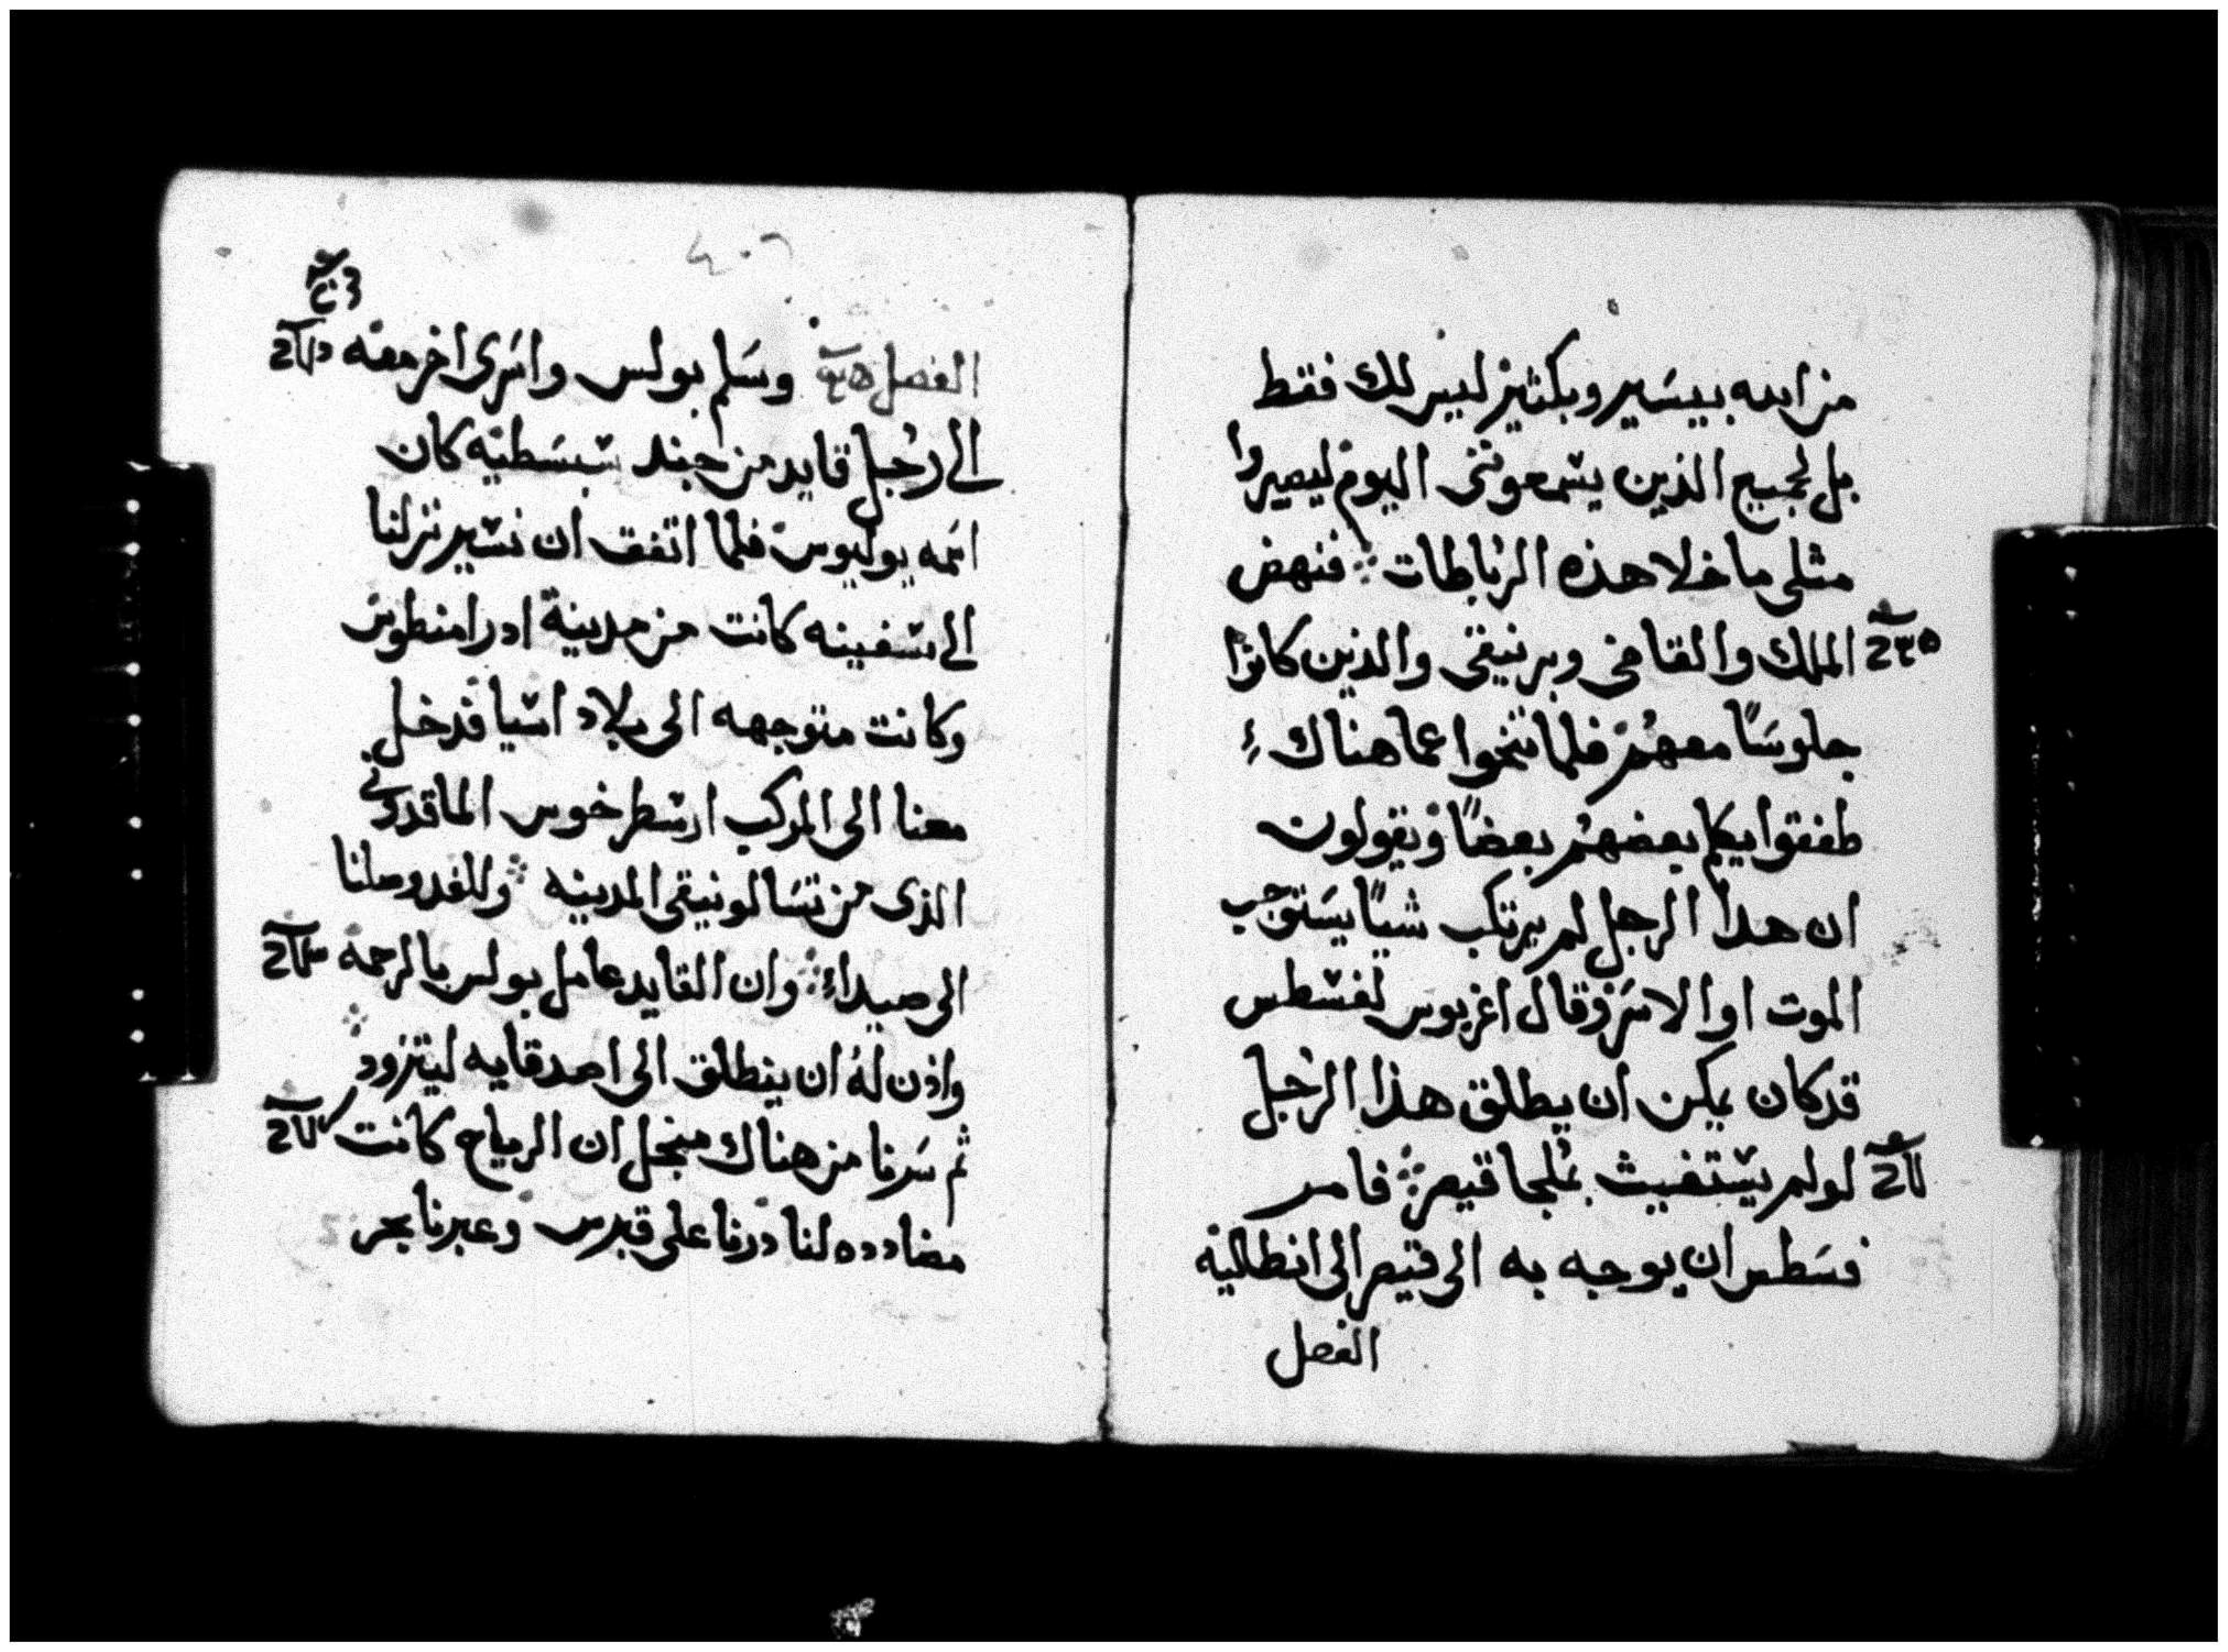 من الله بيسير وبكثير ليس لك فقط
بل لجميع الذين يسمعونني اليوم ليصيروا
مثلي ما خلا هذه الرباطات فنهض
الملك والقاضي وبرنيقي والذين كانوا
جلوسًا معهم فلما تنحوا عما هناك
طفقوا يكلم بعضهم بعضًا ويقولون
ان هدا الرجل لم يرتكب شيًا يستوجب
الموت او الاسر وقال اغربوس لفسطس
قد كان يمكن ان يطلق هذا الرجل
لو لم يستغيث بملجا قيصر فامر
فسطس ان يوجه به الى قيصر الى انطالية
الفصل
٤٠٦
الفصل وسلم بولس واسرى اخر معه
الى رجل قايد من جند سبسطيه كان
اسمه يوليوس فلما اتفق ان نسير نزلنا
الى سفينه كانت من مدينة ادرامنطوس
وكانت متوجهه الى بلاد اسيا فدخل
معنا الى المركب ارسطرخوس الماقدوني
الذى من تسالونيقى المدينه وللغد وصلنا
الى صيداء وان القايد عامل بولس بالرحمه
واذن له ان ينطلق الى اصدقايه ليتزود
ثم سرنا من هناك منجل ان الرياح كانت
مضادده لنا درنا على قبرس وعبرنا بحر